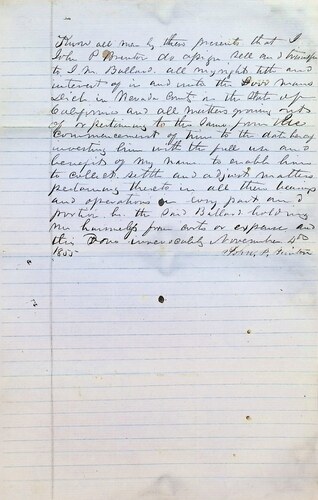 Know all men by these presents that I
John P. do assign sell and transfer
to I. M. Ballard all my right title and
interest of in and unto the Poor Mans
Ditch in Nevada County in the State of
California and all matters growing out
of or pertaining to the same from the
Commencement of time to the date hereof
investing him with the full use and
benefit of my name to enable him
to collect settle and adjust matters
pertaining thereto in all their bearings
and operations in every part and
portion he the said Ballard holding
me harmless from costs or expense and
this Done irrevocably November
1855
John P.